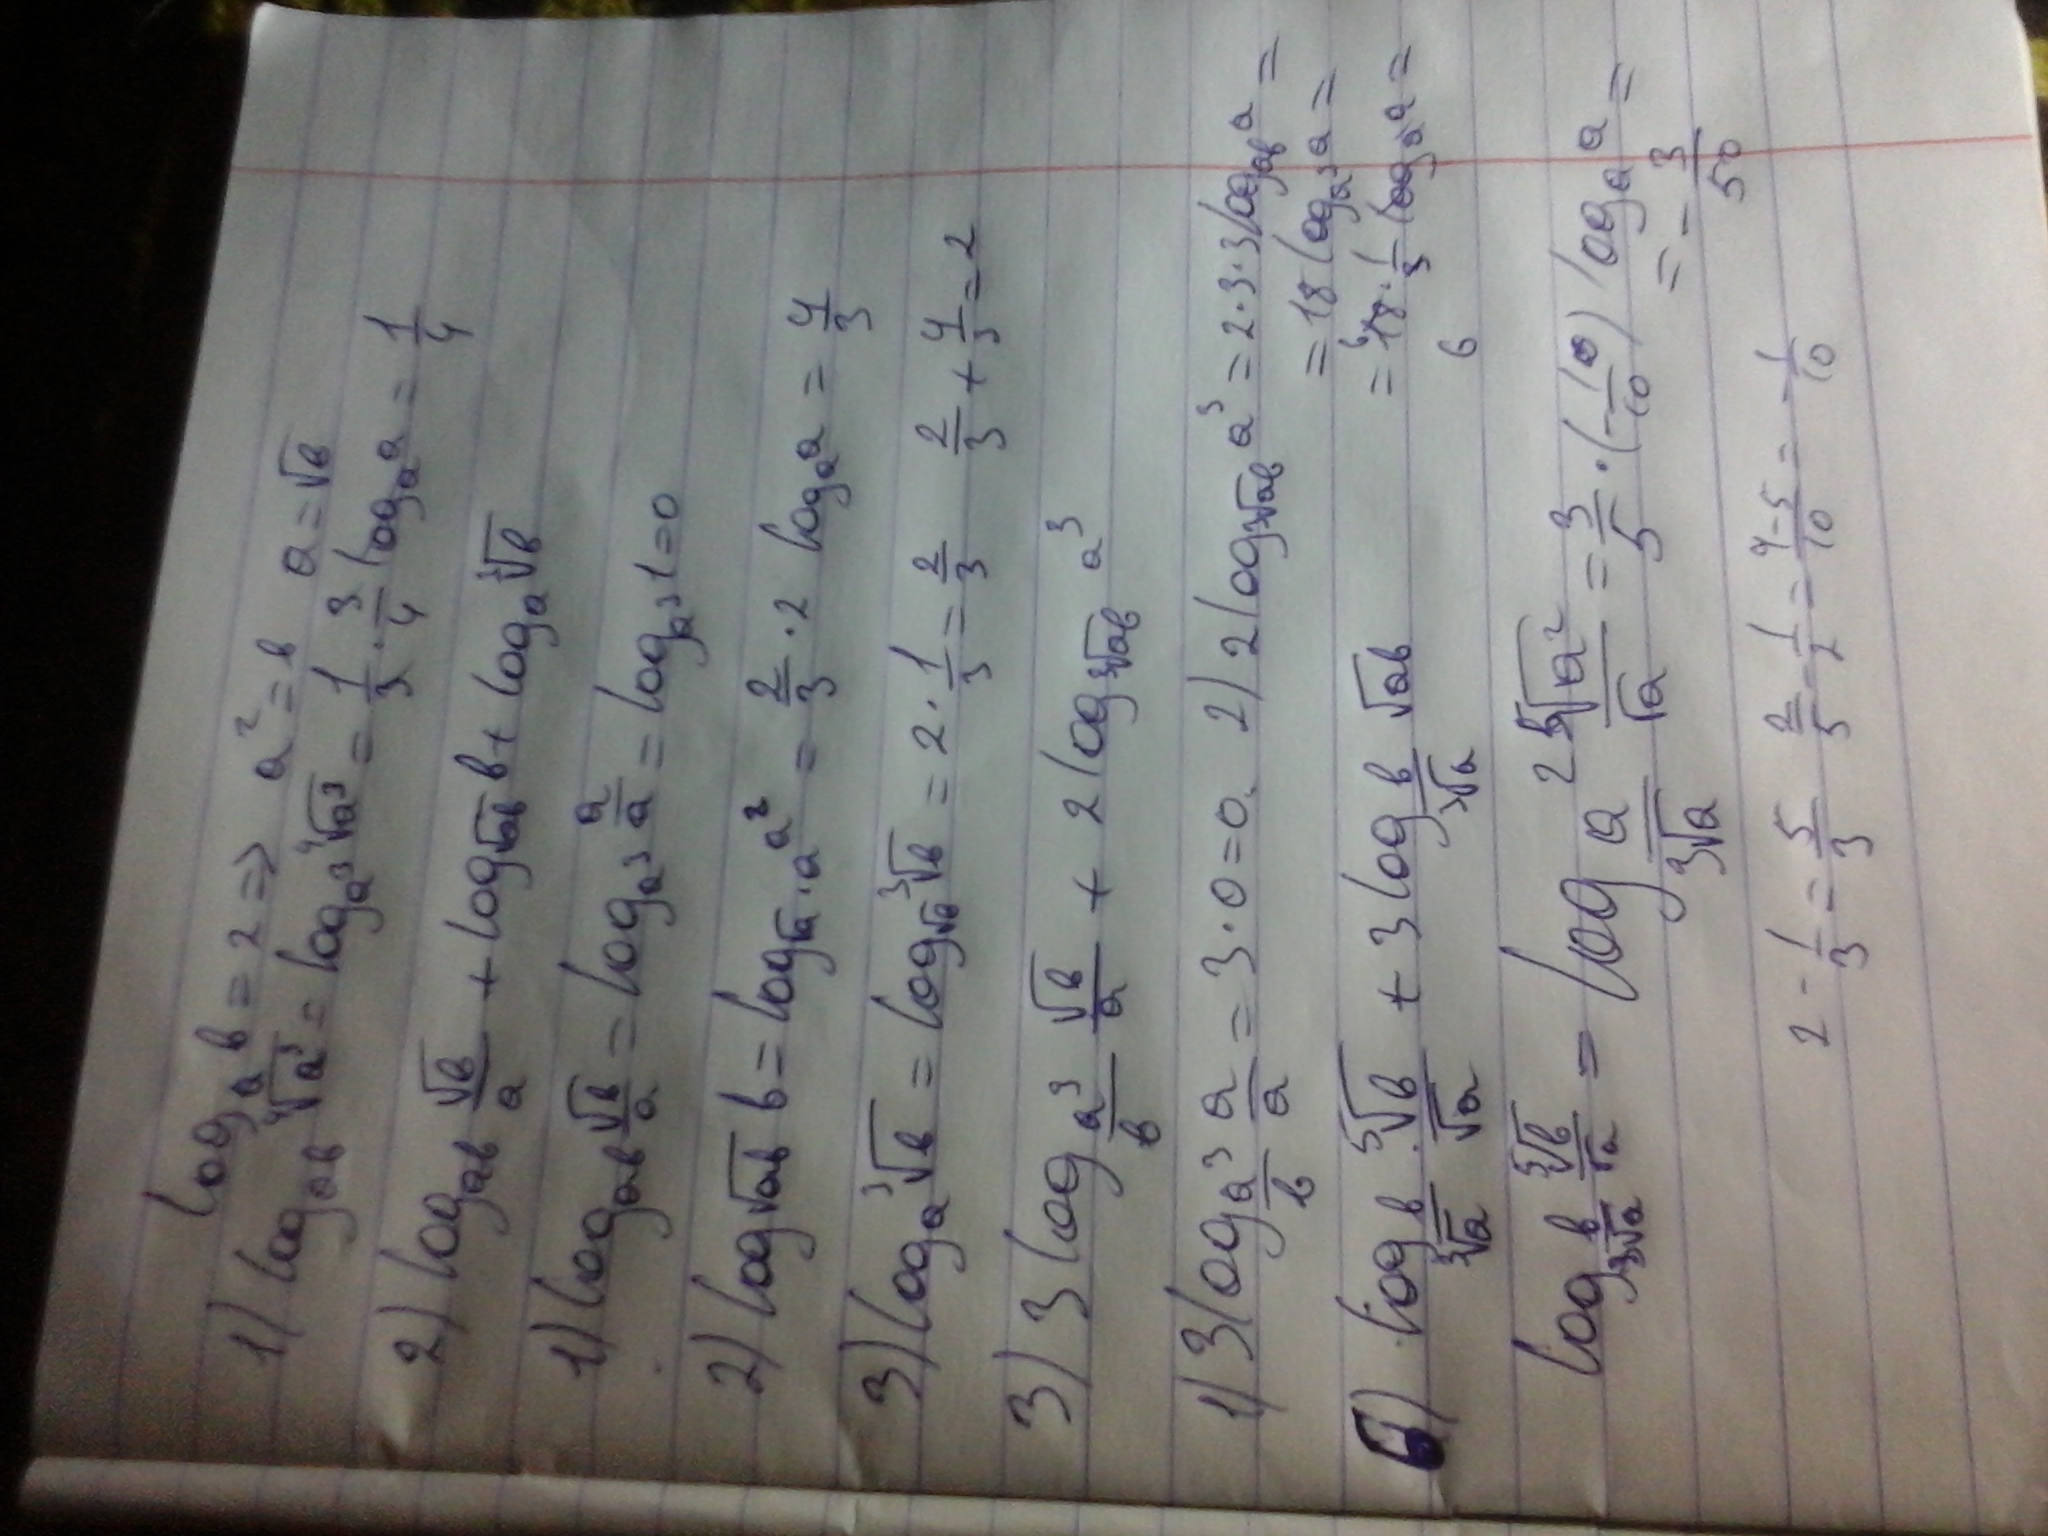 log_a b = 2 => a² = b   a = √b
1) log_ab ⁴√a³ = log_a³ ⁴√a³ = 1/3 · 3/4 log_a a = 1/4
2) log_ab √b/a + log_√ab b + log_a ³√b
1) log_ab √b/a = log_a³ a/a = log_a³ 1 = 0
2) log_√ab b = log_√a·a a² = 2/3 · 2 log_a a = 4/3
3) log_a ³√b = log_√a ³√b = 2 · 1/3 = 2/3   2/3 + 4/3 = 2
3) 3 log_a³/b √b/a + 2 log_³√ab a³
1) 3 log_a³/b a/a = 3 · 0 = 0.   2) 2 log_³√ab a³ = 2·3·3 log_ab a =
= 18 log_a³ a =
= 18 · 1/3 log_a a =
6
log_b/³√a ⁵√b/√a + 3 log_b/³√a √ab
log_b/³√a ⁵√b/√a = log_a²/³√a ⁵√a²/√a = 3/5 · (-1/10) log_a a =
= - 3/50
2 - 1/3 = 5/3   2/5 - 1/2 = 4-5/10 = - 1/10